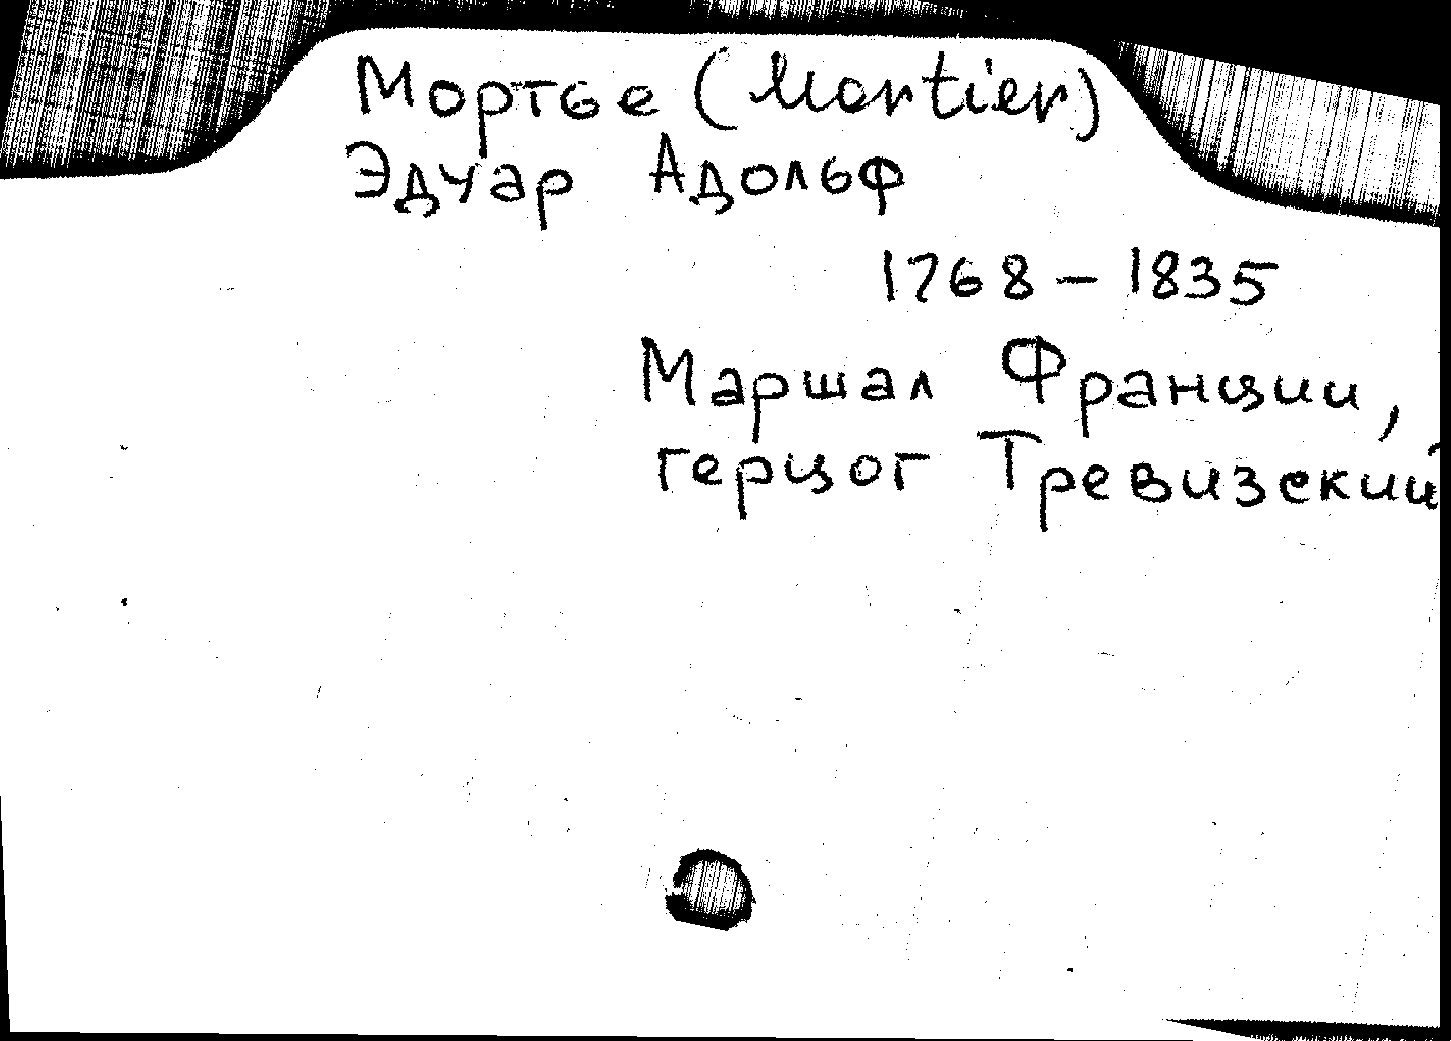 Мортье (Mortier)
Эдуар Адольф
1768 – 1835
Маршал Франции,
герцог Тревизский